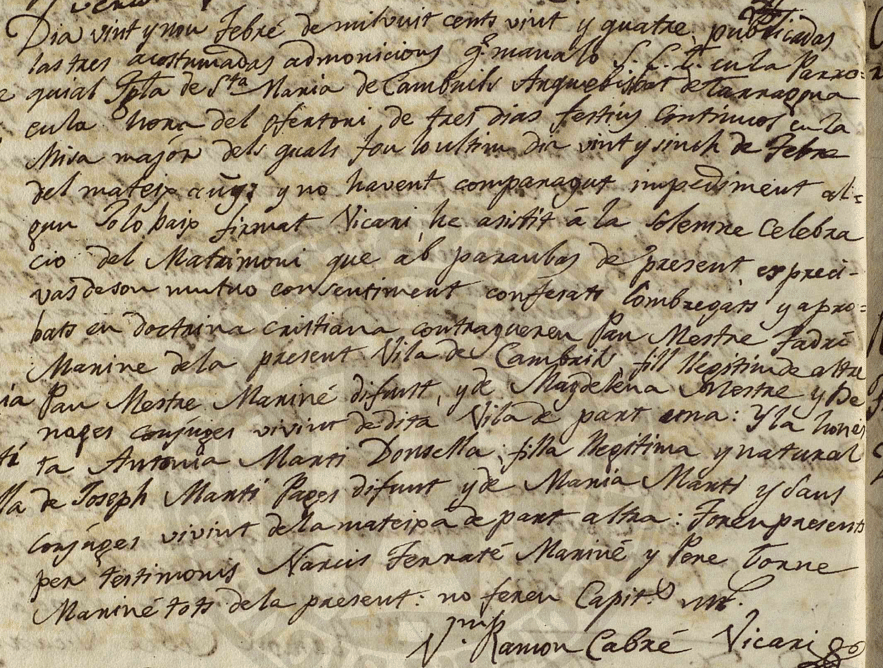 Dia vint y nou Febre de mil vuit cents vint y quatre, publicadas
las tres acostumadas admonicions q.e mana lo S. C. T. en la Parro=
quial Igla de Sta Maria de Cambrils Arquebisbat de Tarragona
en la hora del ofertori de tres dias festius continuos en la
Misa major dels quals fou lo ultim dia vint y sinch de Febre
del mateix añy; y no havent comparagut impediment al=
gun Jo lo baix firmat Vicari, he asistit á la solemne celebra
cio del Matrimoni que ab paraulas de present expreci-
vas de son mutuo consentiment confesats combregats y apro=
bats en doctrina cristiana contragueren Pau Mestre Fadri
Mariné de la present Vila de Cambrils fill llegitim de altre
Pau Mestre Mariné difunt, y de Magdelena Mestre y Be
nages conjuges vivint de dita Vila de part una: Y la hones
ta Antonia Marti Donsella, filla llegitima y natural
de Joseph Marti Pages difunt y de Maria Marti y Saus
conjuges vivint de la mateixa de part altra: Foren presents
per testimonis Narcis Ferraté Mariné y Pere Torne
Mariné tots de la present: no feren Capit.s
Ramon Cabré Vicari